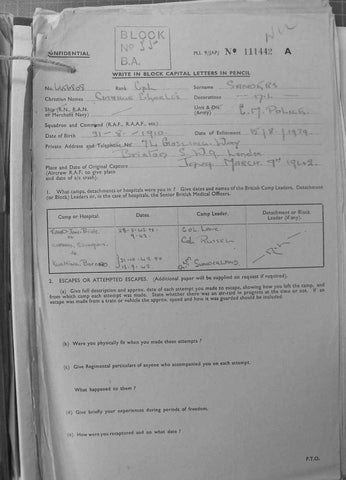 BLOCK
Nº 55
B.A.
CONFIDENTIAL
M.I. 9/JAP/ Nº 111442 A
WRITE IN BLOCK CAPITAL LETTERS IN PENCIL
No. Rank Cpl Surname SANDERS
Christian Names CHARLES Decorations NIL
Ship (R.N., R.A.N. or Merchant Navy) Unit & Div. (Army) C.M. POLICE
Squadron and Command (R.A.F., R.A.A.F. etc.)
Date of Birth 31-8-1910 Date of Enlistment 15/8/1939
Private Address and Telephone No. 74 Way
Brixton S.W.9. London
Place and Date of Original Capture Java MARCH 9TH 1942
(Aircrew R.A.F. to give place and date of a/c crash).
1. What camps, detachments or hospitals were you in? Give dates and names of the British Camp Leaders, Detachment (or Block) Leaders or, in the case of hospitals, the Senior British Medical Officers.
Camp or Hospital. Dates. Camp Leader. Detachment or Block Leader (if any).
Col Lane
Col Russell
Kuching Borneo SUNDERLAND
2. ESCAPES OR ATTEMPTED ESCAPES. (Additional paper will be supplied on request if required).
(a) Give full description and approx. date of each attempt you made to escape, showing how you left the camp, and from which camp each attempt was made. State whether there was an air-raid in progress at the time or not. If an escape was made from a train or vehicle the approx. speed and how it was guarded should be included.
(b) Were you physically fit when you made these attempts?
(c) Give Regimental particulars of anyone who accompanied you on each attempt.
What happened to them?
(d) Give briefly your experiences during periods of freedom.
(e) How were you recaptured and on what date?
P.T.O.